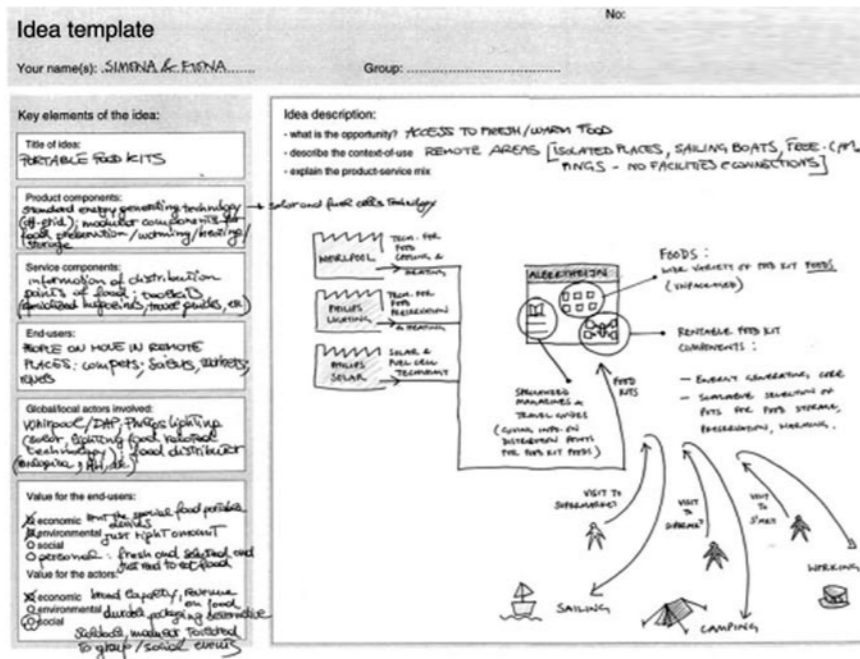 No:
Idea template
Your name(s): SIMONA & FIONA
Group:
Key elements of the idea:
Title of idea:
PORTABLE FOOD KITS
Product components:
standard energy generating technology → solar and fuel cells technology
(off-grid); modular components for
food preservation/warming/heating/
storage
Service components:
information of distribution
points of food; toolkits
(specialized magazines, travel guides, etc)
End-users:
PEOPLE ON MOVE IN REMOTE
PLACES: campers; sailors, workers;
Global/local actors involved:
Whirlpool/DAP; Philips lighting
(solar, lighting food related
technology); food distributor
Value for the end-users:
economic rent the special food portable
devices
environmental just right amount
social
personal: fresh and selected and
just need to eat food
Value for the actors:
economic brand loyalty, revenue
on food
environmental durable packaging
social
to group/social events
Idea description:
- what is the opportunity? ACCESS TO FRESH/WARM FOOD
- describe the context-of-use REMOTE AREAS [ISOLATED PLACES, SAILING BOATS, FREE-CAM
PINGS - NO FACILITIES CONNECTIONS]
- explain the product-service mix
WHIRLPOOL
TECH. FOR
FOOD
COOLING &
HEATING
PHILIPS
LIGHTING
TECH. FOR
FOOD
PRESERVATION
& HEATING
PHILIPS
SOLAR
SOLAR &
FUEL CELL
TECHNOLOGY
ALBERTHEIJN
FOODS:
WIDE VARIETY OF FOOD KIT FOODS
(UNPACKAGED)
RENTABLE FOOD KIT
COMPONENTS:
- ENERGY GENERATING CORE
- SCALABLE SELECTION OF
POTS FOR FOOD STORAGE,
PRESERVATION, WARMING.
SPECIALIZED
MAGAZINES &
TRAVEL GUIDES
(GIVING INFO. ON
DISTRIBUTION POINTS
FOR FOOD KIT FOODS)
FOOD
KITS
VISIT TO
SUPERMARKET
VISIT
TO
VISIT
TO
SAILING
CAMPING
WORKING